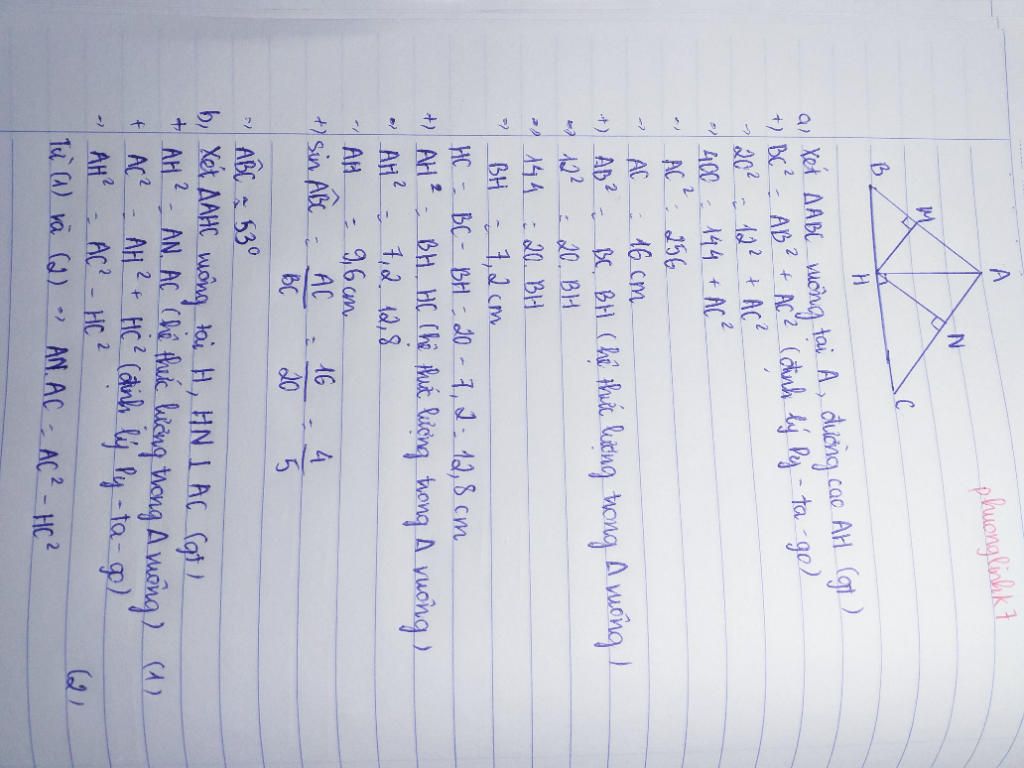 phuonglinhk7
A
M
N
B
H
C
a, Xét ΔABC vuông tại A, đường cao AH (gt)
+) BC² = AB² + AC² (định lý Py-ta-go)
⇒ 20² = 12² + AC²
⇒ 400 = 144 + AC²
⇒ AC² = 256
⇒ AC = 16 cm
+) AB² = BC. BH (hệ thức lượng trong Δ vuông)
⇒ 12² = 20. BH
⇒ 144 = 20. BH
⇒ BH = 7,2 cm
HC = BC - BH = 20 - 7,2 = 12,8 cm
+) AH² = BH. HC (hệ thức lượng trong Δ vuông)
⇒ AH² = 7,2. 12,8
⇒ AH = 9,6 cm
+) Sin ABC = AC/BC = 16/20 = 4/5
⇒ ABC = 53°
b, Xét ΔAHC vuông tại H, HN ⊥ AC (gt)
+ AH² = AN. AC (hệ thức lượng trong Δ vuông) (1)
+ AC² = AH² + HC² (định lý Py-ta-go)
⇒ AH² = AC² - HC² (2)
Từ (1) và (2) ⇒ AN.AC = AC² - HC²